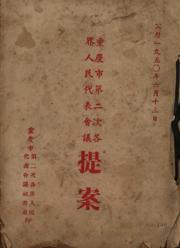 公曆一九五〇年六月十三日
重慶市第二次各
界人民代表會議
提案
重慶市第二次各界人民
代表會議秘書處印